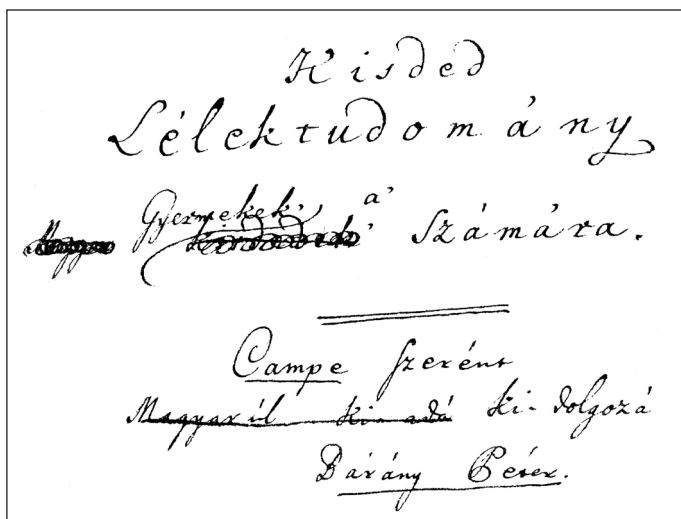 Kisded
Lélektudomány
Gyermekek, a' Számára.
Campe szerént
Magyarúl ki-adá ki-dolgozá
Bárány Péter.